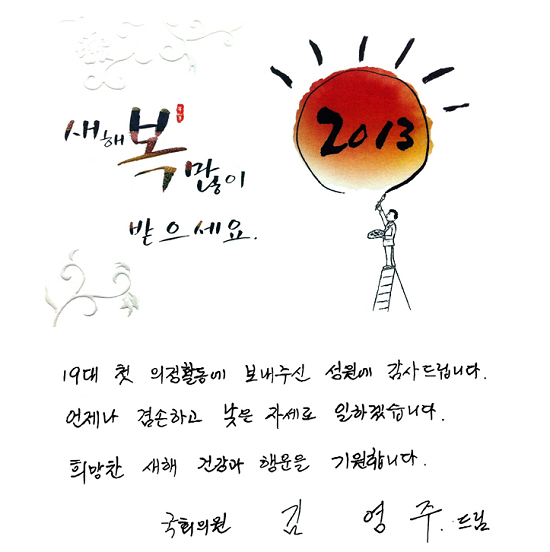 새해 복 많이
받으세요.
2013
19대 첫 의정활동에 보내주신 성원에 감사드립니다.
언제나 겸손하고 낮은 자세로 일하겠습니다.
희망찬 새해 건강과 행운을 기원합니다.
국회의원 김영주. 드림